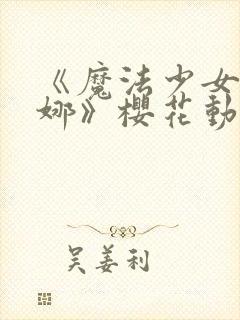 《魔法少女
娜》櫻花動
吴姜利